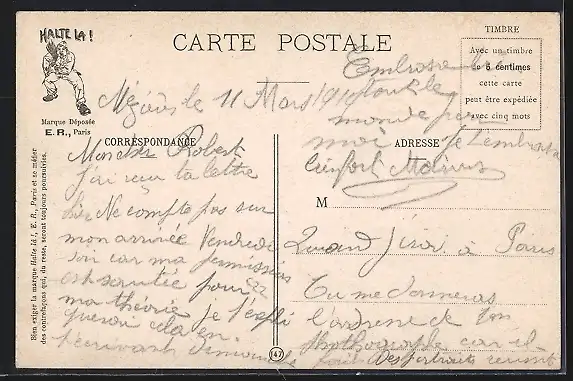 HALTE LA !
Marque Déposée
E. R., Paris
CARTE POSTALE
TIMBRE
Avec un timbre
de 5 centimes
cette carte
peut être expédiée
avec cinq mots
le 11 Mars 1910
CORRESPONDANCE
ADRESSE
M
Mon cher Robert
j'ai reçu ta lettre
hier Ne compte pas sur
mon arrivée Vendredi
soir car ma permission
est sautée pour
ma théorie je t'expli
querai cela en
t'écrivant
Embrasse
tout le
monde pour
moi Je t'embrasse
Quand j'irai à Paris
Tu me donneras
l'adresse de ton
photographe car il
fait des portraits
Bien exiger la marque Halte là !, E. R., Paris et se méfier
des contrefaçons qui, du reste, seront toujours poursuivies.
47